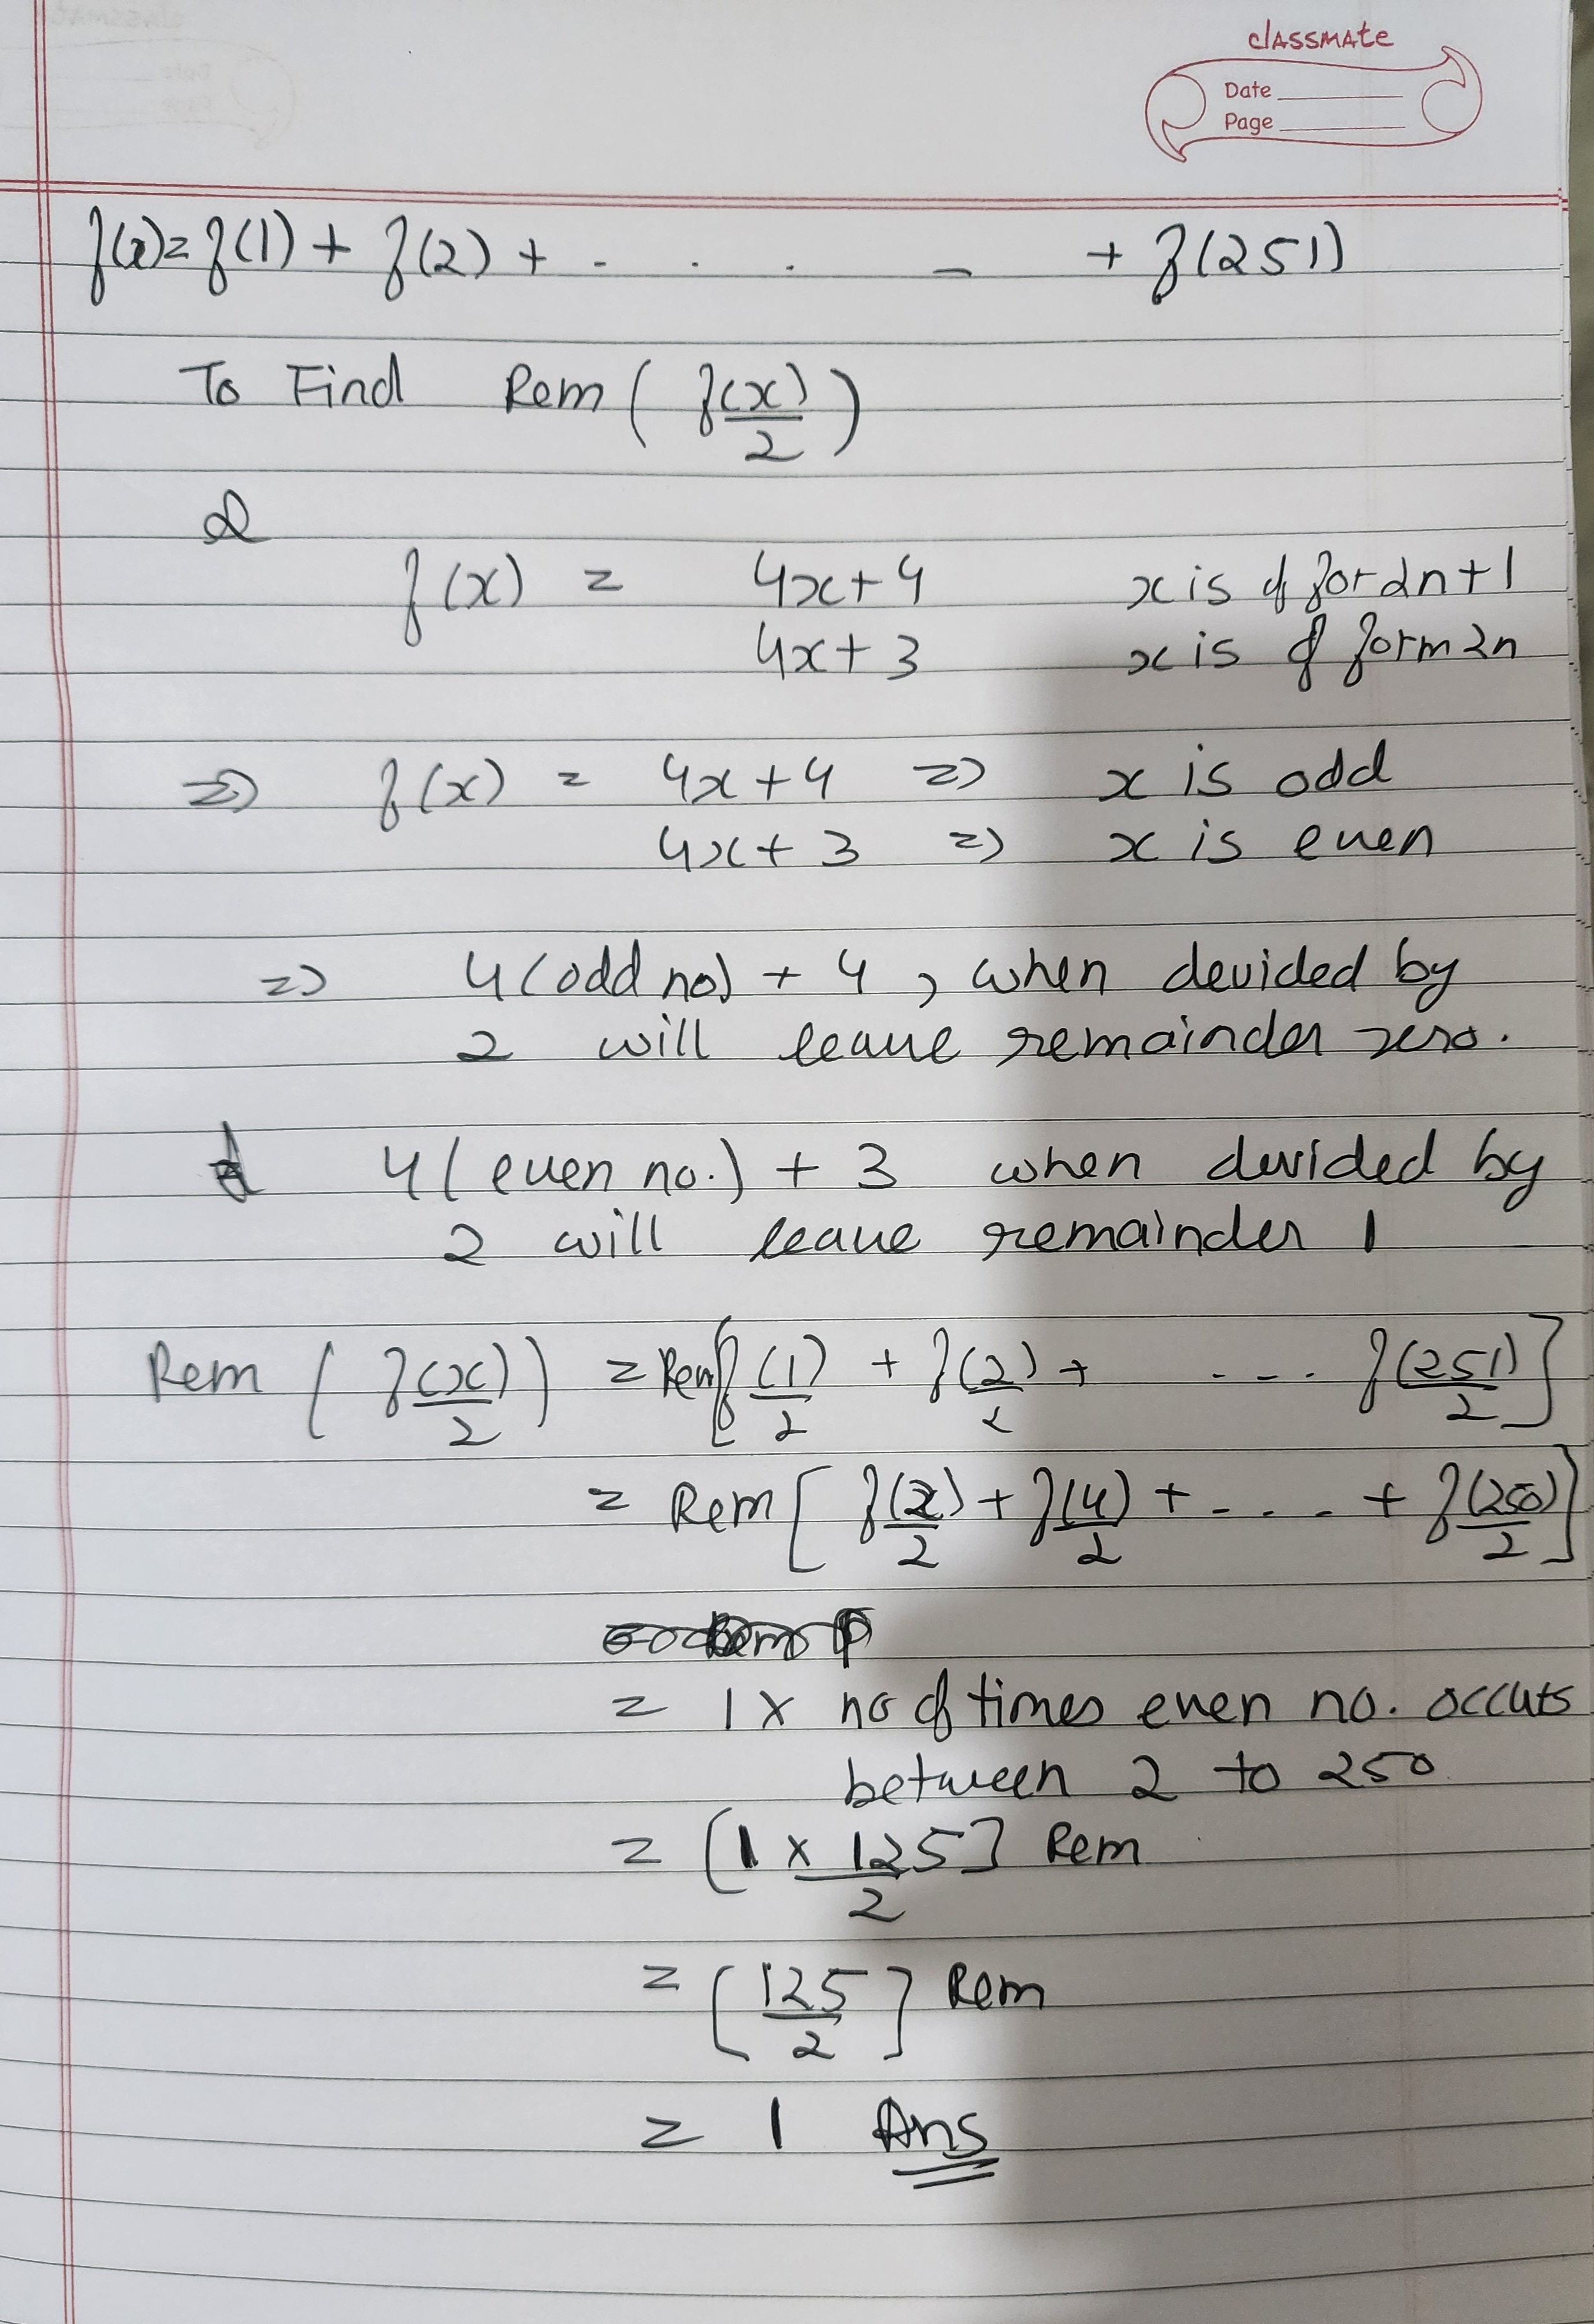 classmate
Date
Page
f(x) = f(1) + f(2) + - . . . - + f(251)
To Find Rem ( f(x)/2 )
&
f(x) = 4x+4 x is of for 2n+1
4x+3 x is of form 2n
=> f(x) = 4x+4 => x is odd
4x+3 => x is even
=> 4(odd no) + 4 , when devided by
2 will leave remainder zero.
& 4(even no.) + 3 when devided by
2 will leave remainder 1
Rem ( f(x)/2 ) = Rem[ f(1)/2 + f(2)/2 + - - - . f(251)/2 ]
= Rem [ f(2)/2 + f(4)/2 + - . . - + f(250)/2 ]
= 1 x no of times even no. occurs
between 2 to 250
= [1 x 125/2] Rem
= [125/2] Rem
= 1 Ans